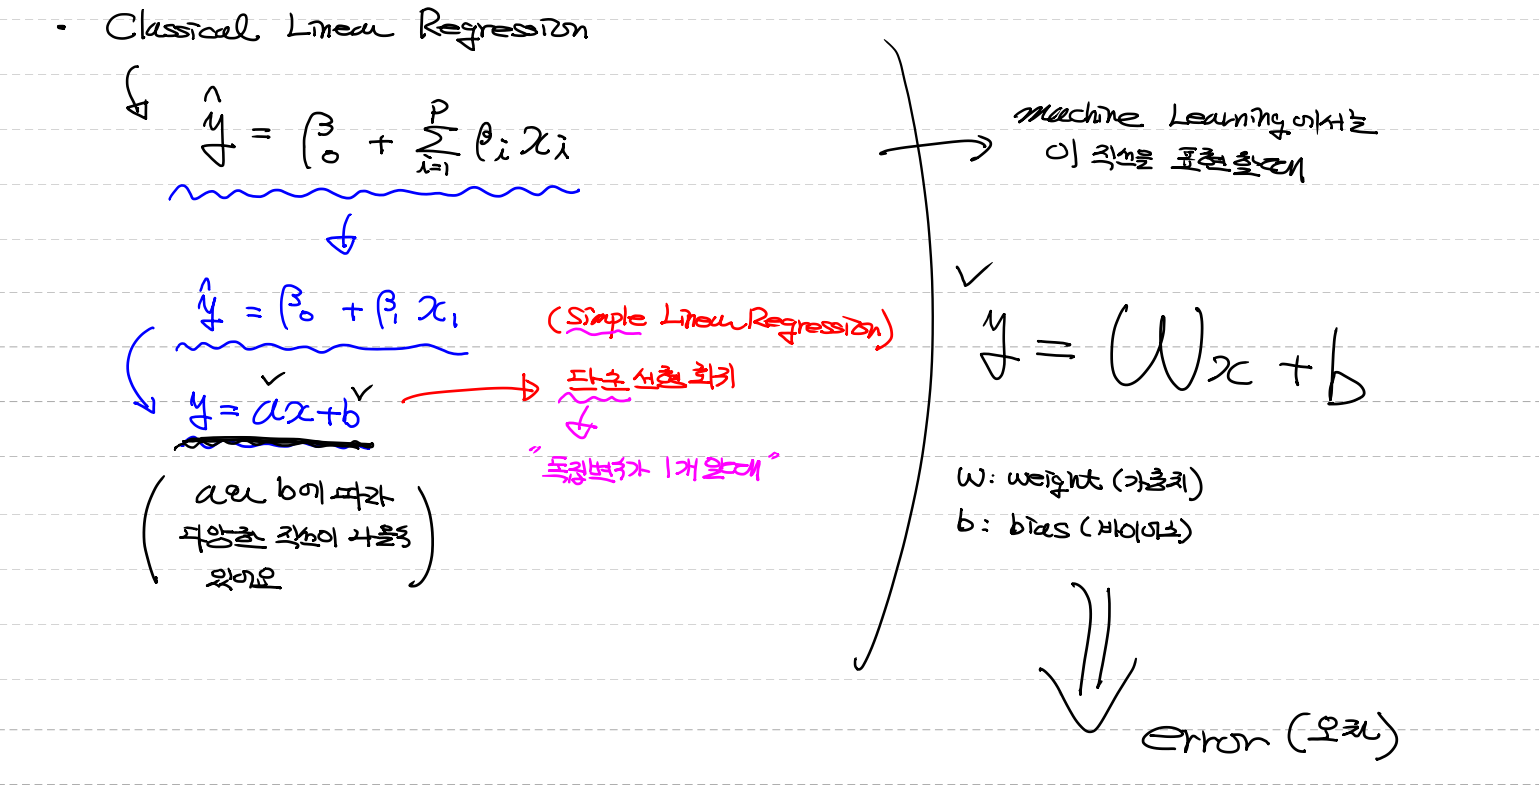 · Classical Linear Regression
ŷ = β₀ + Σ (i=1, p) βᵢ xᵢ
ŷ = β₀ + β₁ x₁
(Simple Linear Regression)
y = ax+b
단순 선형 회귀
"독립변수가 1개 일때"
(a와 b에 따라
다양한 직선이 나올수
있어요)
machine Learning에서는
이 직선을 표현할때
y = Wx + b
W: weight (가중치)
b: bias (바이어스)
error (오차)